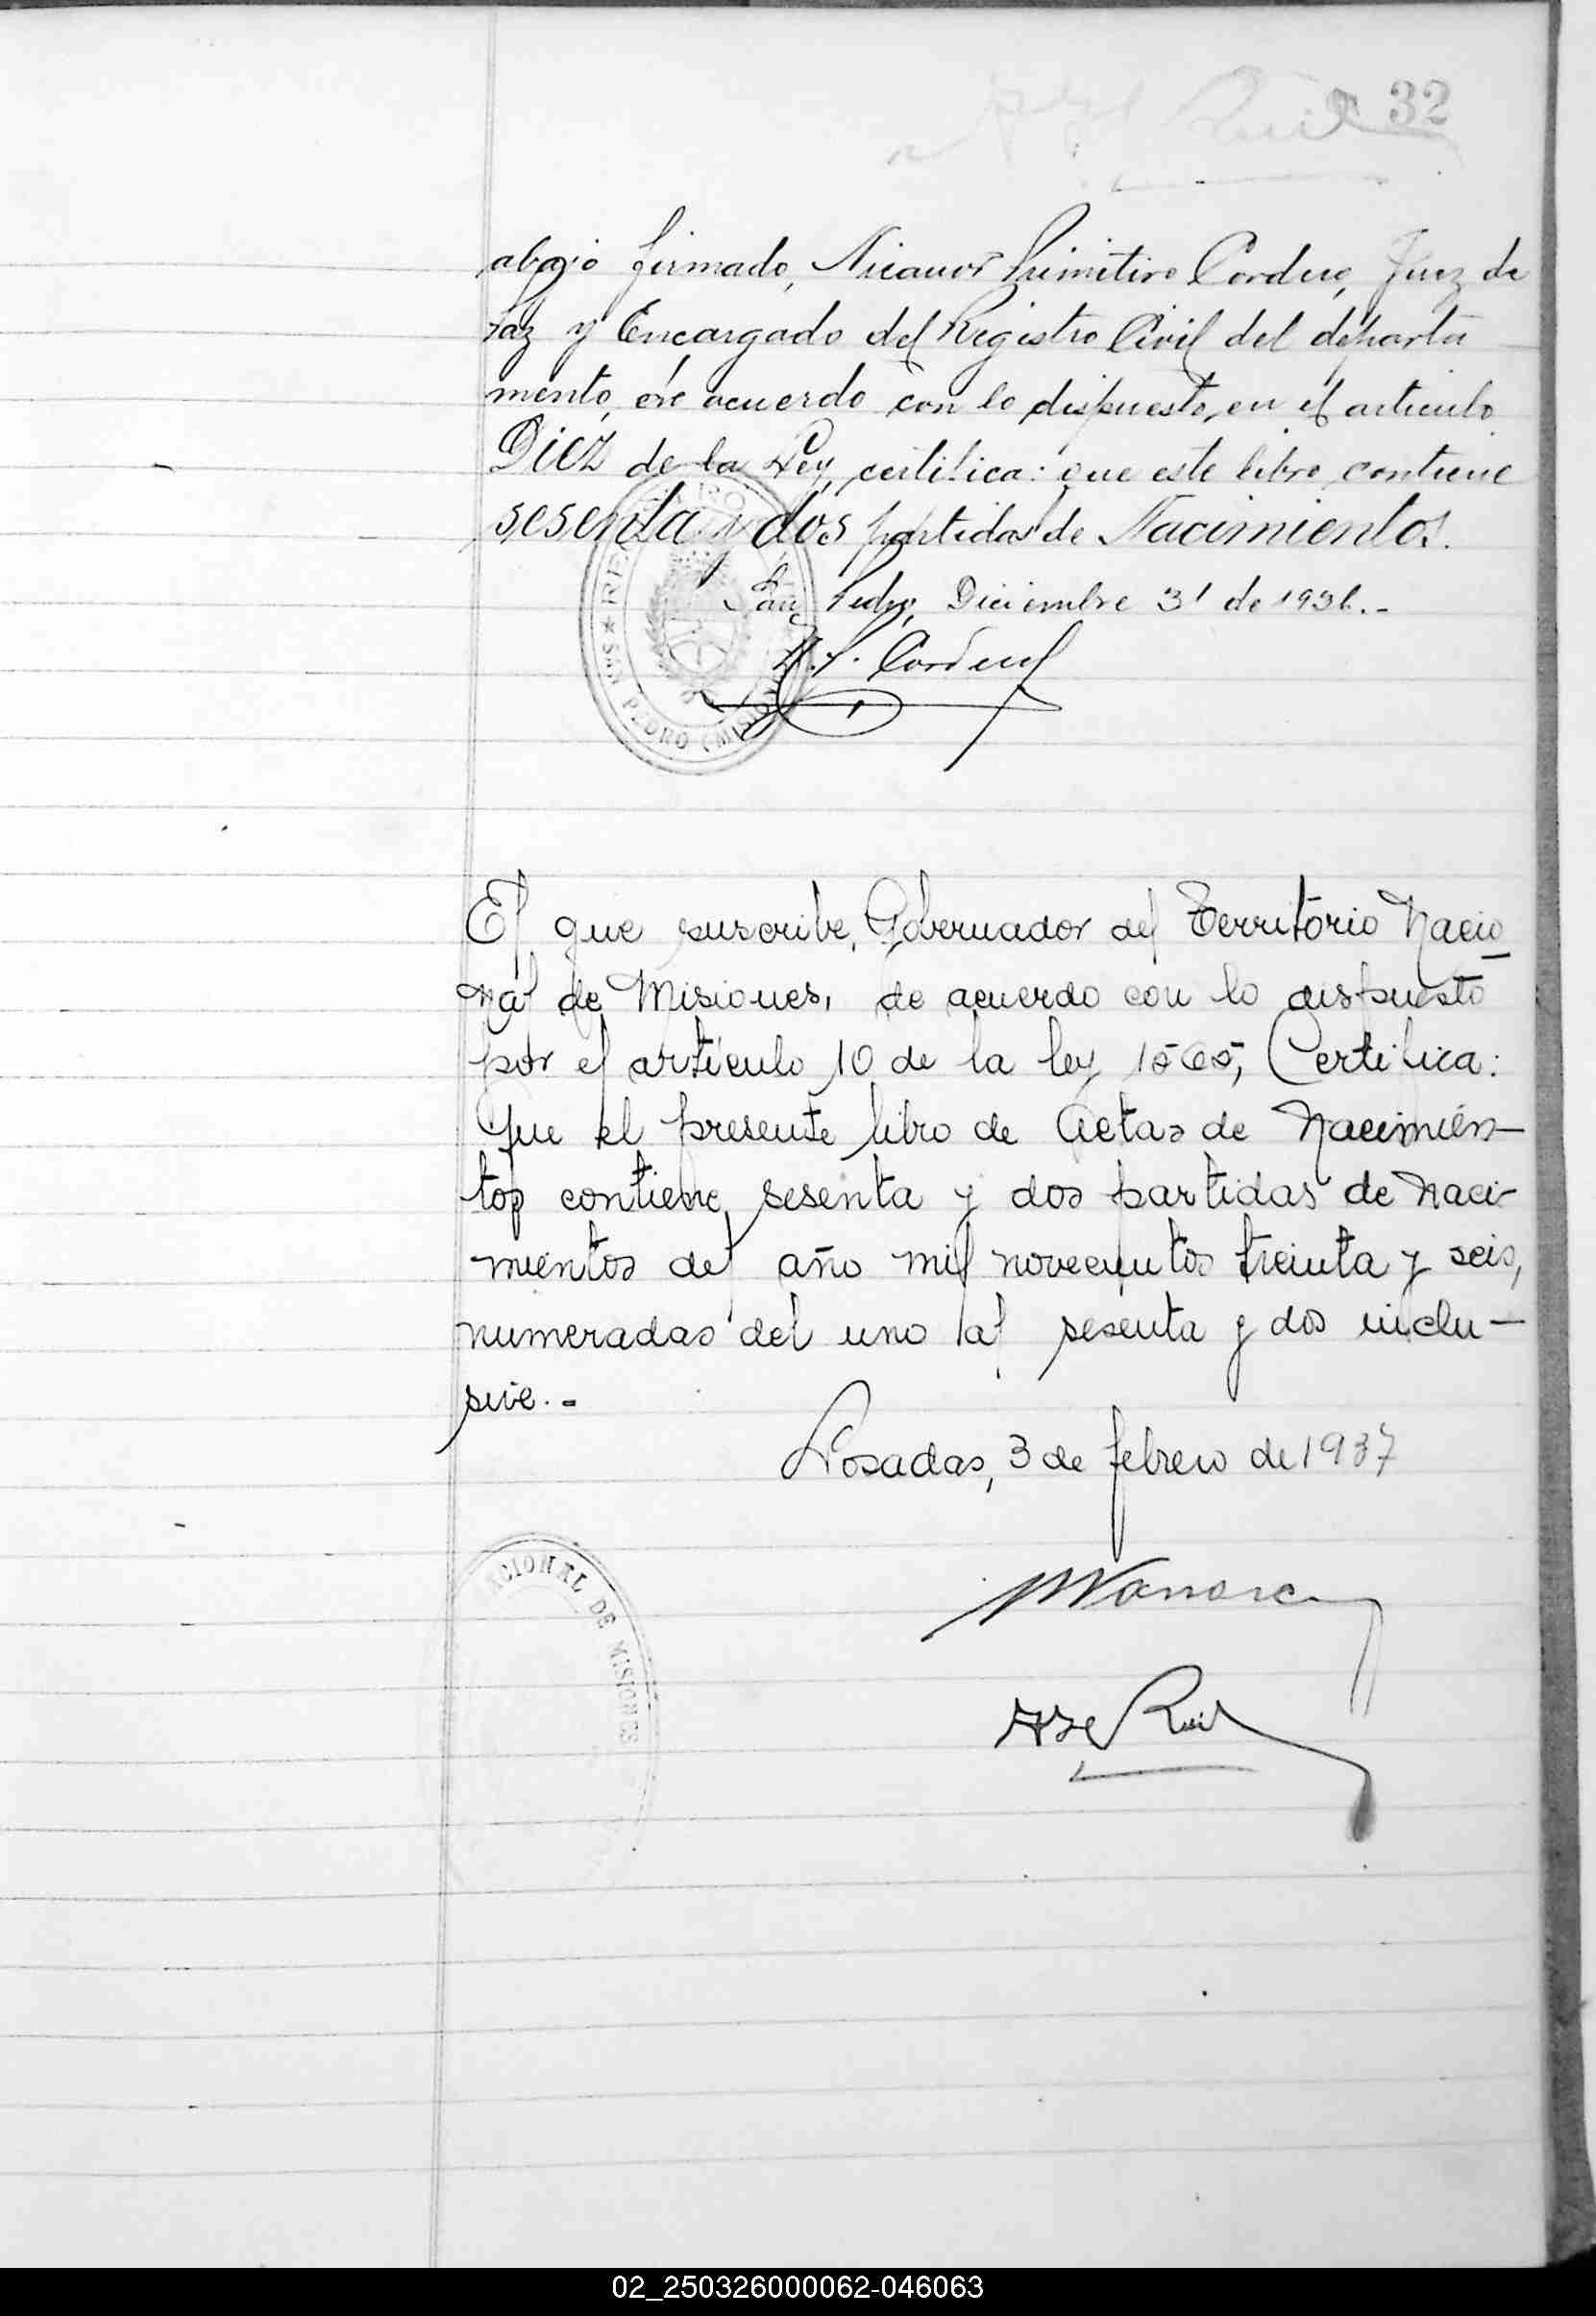 32
abajo firmado, Nicanor Primitivo Cordue, Juez de
Paz y Encargado del Registro Civil del departa
mento, de acuerdo con lo dispuesto, en el articulo
Diez de la Ley, certifica: que este libro, contiene
sesenta y dos partidas de Nacimientos.
San Pedro, Diciembre 31 de 1936.-
N.P. Cordue
SAN PEDRO (MISIONES
El que suscribe, Gobernador del Territorio Nacio
nal de Misiones, de acuerdo con lo dispuesto
por el artículo 10 de la ley 1565, Certifica:
Que el presente libro de Actas de Nacimien-
tos contiene sesenta y dos partidas de naci-
mientos del año mil novecientos treinta y seis,
numeradas del uno al sesenta y dos inclu-
sive.-
Posadas, 3 de febrero de 1937
ACIONAL DE MISIONES
Ruiz
02_250326000062-046063